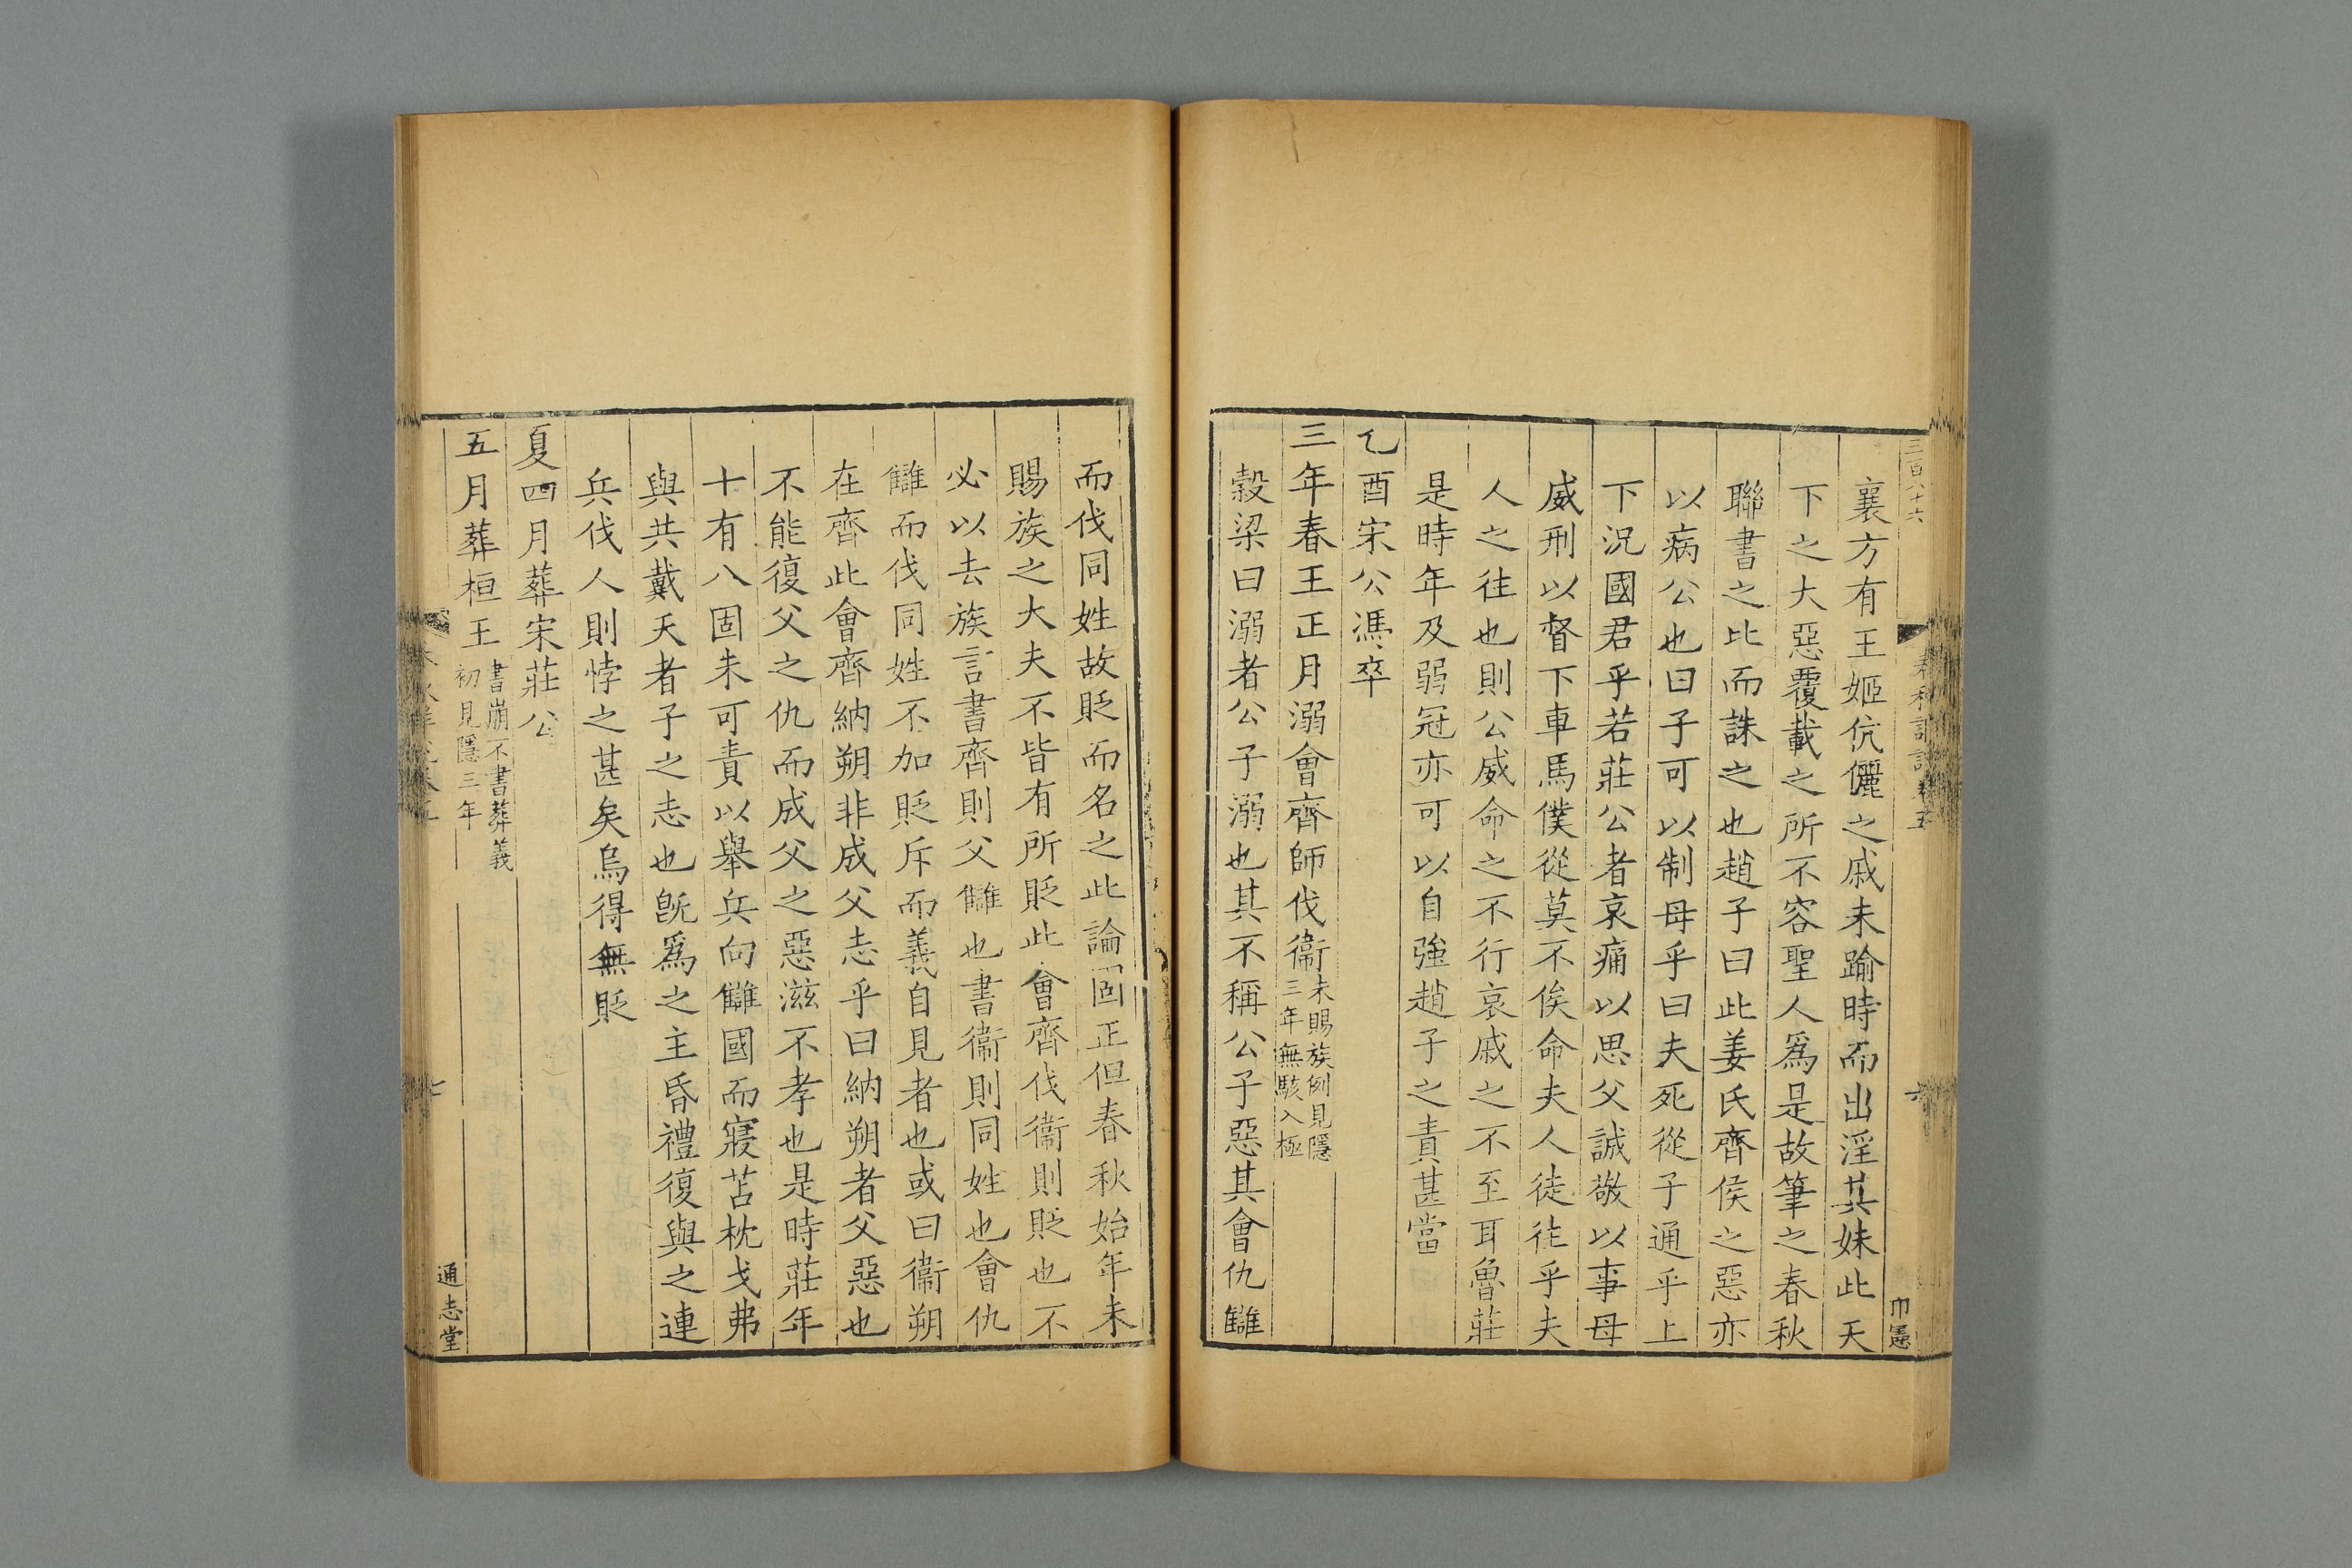 三百八十六
春秋詳說卷五
六
巾憲
襄方有王姬伉儷之戚未踰時而出淫其妹此天
下之大惡覆載之所不容聖人爲是故筆之春秋
聯書之比而誅之也趙子曰此姜氏齊侯之惡亦
以病公也曰子可以制母乎曰夫死從子通乎上
下況國君乎若莊公者哀痛以思父誠敬以事母
威刑以督下車馬僕從莫不俟命夫人徒往乎夫
人之往也則公威命之不行哀戚之不至耳魯莊
是時年及弱冠亦可以自強趙子之責甚當
乙酉宋公馮卒
三年春王正月溺會齊師伐衞未賜族例見隱三年無駭入極
穀梁曰溺者公子溺也其不稱公子惡其會仇讎
而伐同姓故貶而名之此論固正但春秋始年未
賜族之大夫不皆有所貶此會齊伐衞則貶也不
必以去族言書齊則父讎也書衞則同姓也會仇
讎而伐同姓不加貶斥而義自見者也或曰衞朔
在齊此會齊納朔非成父志乎曰納朔者父惡也
不能復父之仇而成父之惡滋不孝也是時莊年
十有八固未可責以舉兵向讎國而寢苫枕戈弗
與共戴天者子之志也旣爲之主昏禮復與之連
兵伐人則悖之甚矣烏得無貶
夏四月葬宋莊公
五月葬桓王書崩不書葬義初見隱三年
七
通志堂